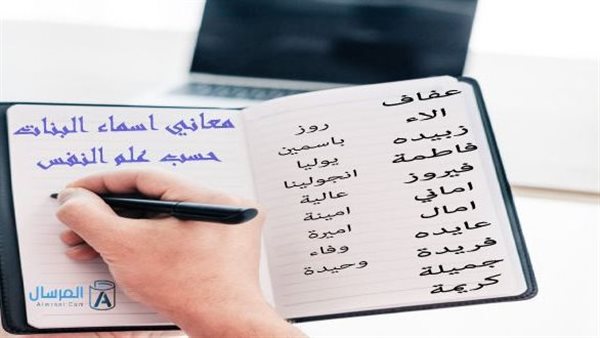 معاني اسماء البنات
حسب علم النفس
عفاف
الاء
زبيده
فاطمة
فيروز
اماني
امال
عايده
فريدة
جميلة
كريمة
روز
ياسمين
يوليا
انجولينا
عالية
امينة
اميرة
وفاء
وحيدة
المرسال
Almrsal.Com